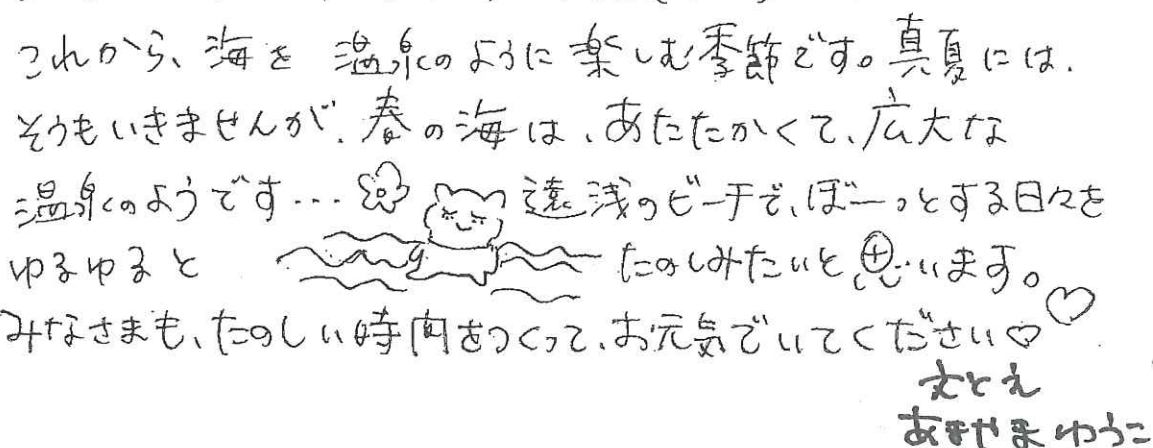 これから、海を温泉のように楽しむ季節です。真夏には、
そうもいきませんが、春の海は、あたたかくて、広大な
温泉のようです… 遠浅のビーチで、ぼーっとする日々を
ゆるゆると たのしみたいと思います。
みなさまも、たのしい時間をつくって、お元気でいてください♡♡
文とえ
あまやまゆうこ